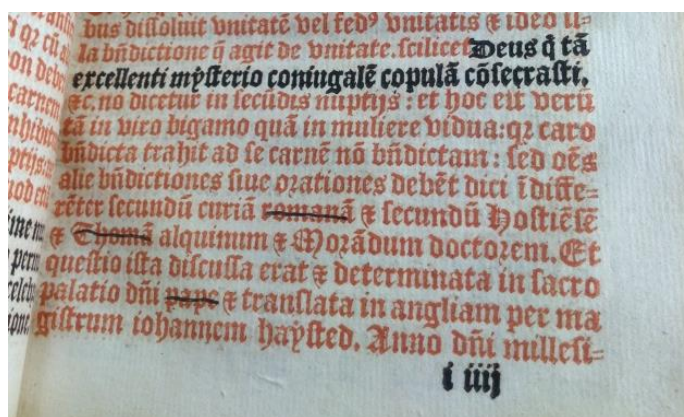 bus dissoluit vnitatē vel fedꝰ vnitatis ⁊ ideo il-
la bn̄dictione q̄ agit de vnitate. scilicet Deus q̇ tā
excellenti mẏsterio coniugalē copulā cōsecrasti.
⁊c. nō dicetur in secūdis nuptijs : et hoc est verū
tā in viro bigamo quā in muliere vidua: qꝛ caro
bn̄dicta trahit ad se carnē nō bn̄dictam : sed oēs
alie bn̄dictiones siue orationes debēt dici īdiffe=
rēter secundū curiā romanā ⁊ secundū Hostiēsē
⁊ Thomā alquinum ⁊ Morādum doctorem. Et
questio ista discussa erat ⁊ determinata in sacro
palatio dn̄i pape ⁊ translata in angliam per ma
gistrum iohannem haẏsted. Anno dn̄i millesi=
i iiij